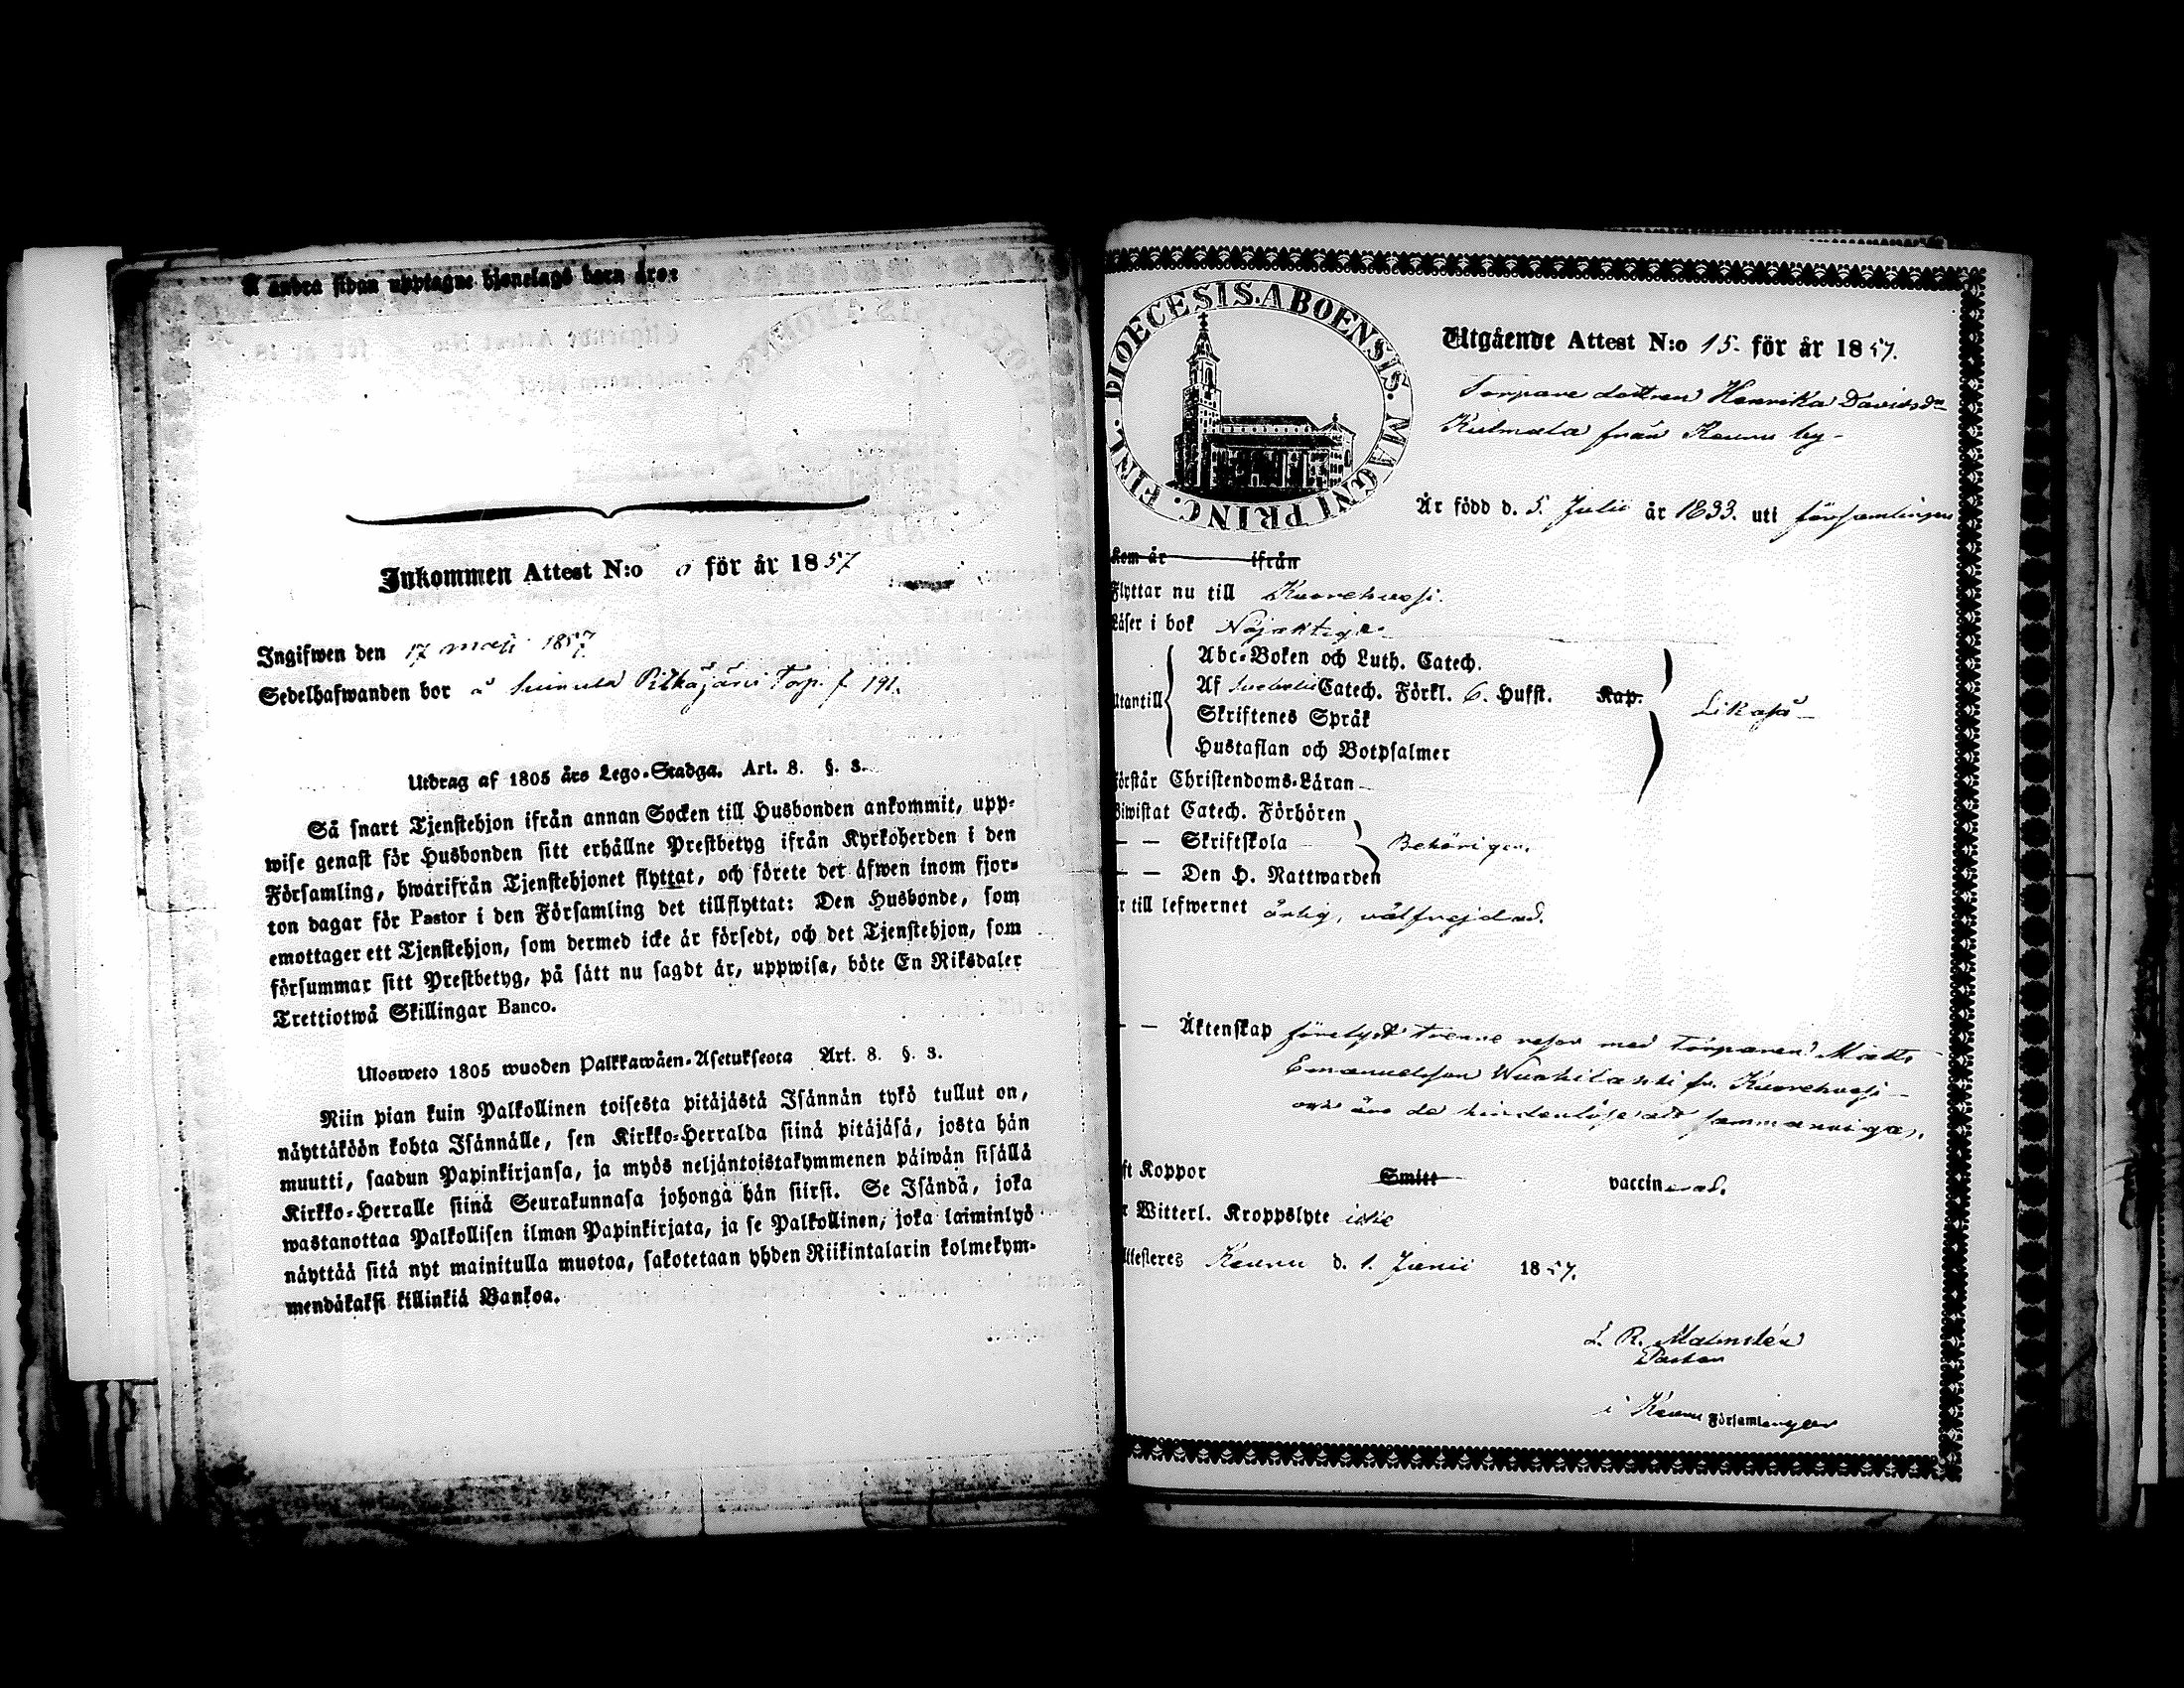 Å andra sidan upptagne hjonelags barn äro:
Inkommen Attest N:o 6 för år 1857
Ingifwen den 17 maji 1857
Sedelhafwanden bor å Suinula Pitkäjärvi Torp. f 191.
Utdrag af 1805 års Lego-Stadga. Art. 8. §. 3.
Så snart Tjenstehjon ifrån annan Socken till Husbonden ankommit, upp-
wise genast för Husbonden sitt erhållne Prestbetyg ifrån Kyrkoherden i den
Församling, hwarifrån Tjenstehjonet flyttat, och förete det äfwen inom fjor-
ton dagar för Pastor i den Församling det tillflyttat: Den Husbonde, som
emottager ett Tjenstehjon, som dermed icke är försedt, och det Tjenstehjon, som
försummar sitt Prestbetyg, på sätt nu sagdt är, uppwisa, böte En Riksdaler
Trettiotwå Skillingar Banco.
Ulosweto 1805 wuoden Palkkawäen-Asetuksesta Art. 8. §. 3.
Niin pian kuin Palkollinen toisesta pitäjästä Isännän tykö tullut on,
näyttäköön kohta Isännälle, sen Kirkko-Herralda siinä pitäjäsä, josta hän
muutti, saadun Papinkirjansa, ja myös neljäntoistakymmenen päiwän sisällä
Kirkko-Herralle siinä Seurakunnasa johonga hän siirsi. Se Isändä, joka
wastanottaa Palkollisen ilman Papinkirjata, ja se Palkollinen, joka laiminlyö
näyttää sitä nyt mainitulla muotoa, sakotetaan yhden Riikintalarin kolmekym-
mendäkaksi killinkiä Bankoa.
DIOECESIS. ABOENSIS. MAGNI PRINC. FINL.
Utgående Attest N:o 15. för år 1857.
Torpare dottren Henrika Davidsdr
Kulmala från Keuru by-
Är född d. 5. Julii år 1833. uti församlingen
Kom år ifrån
Flyttar nu till Kuorehvesi.
Läser i bok Nöjaktige-
Abc-Boken och Luth. Catech.
Utantill Af Svebelii Catech. Förkl. 6. Hufst. Kap. Likaså-
Skriftenes Språk
Hustaflan och Botpsalmer
Förstår Christendoms-Läran-
Biwistat Catech. Förhören
— — Skriftskola Behörigen.
— — Den H. Nattwarden
Är till lefwernet ärlig, välfrejdad.
— — Äktenskap förelyst trenne resor med Torparen Matts
Emanuelsson Wuohilahti fr. Kuorehvesi-
och äro de hinderlöse att sammanvigas.
ft Koppor Smitt vaccinerad.
r Witterl. Kroppslyte icke
Attesteres Keuru d. 1. Junii 1857.
L. R. Malmstén
Pastor
i Keuru Församlingen